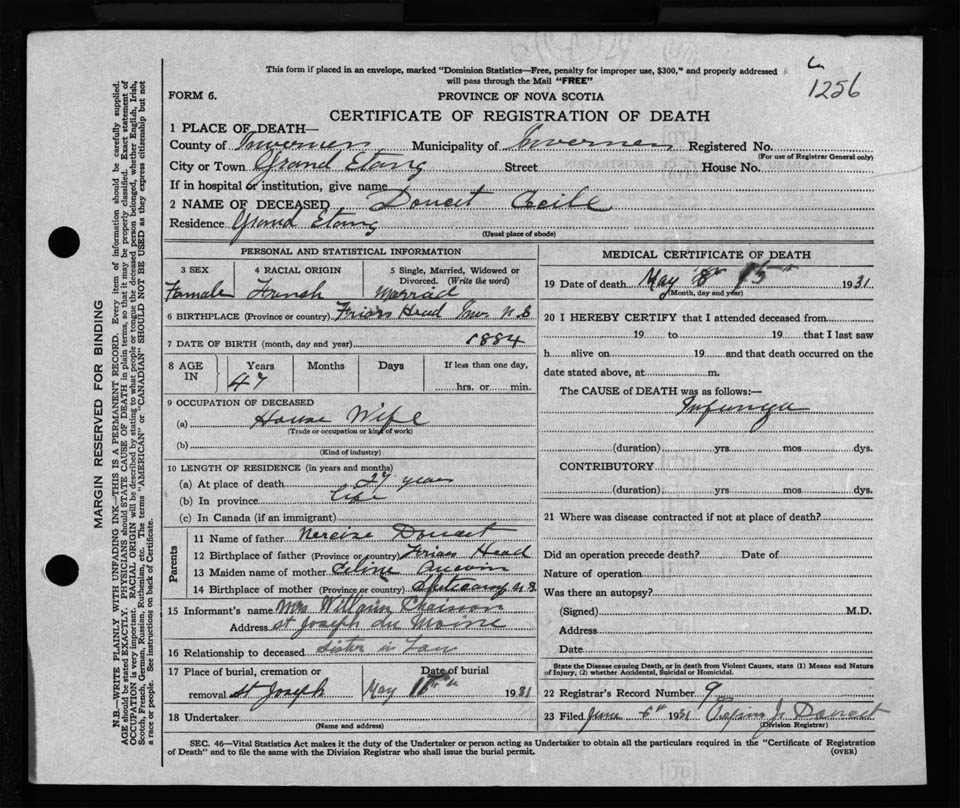 This form if placed in an envelope, marked "Dominion Statistics—Free, penalty for improper use, $300," and properly addressed
will pass through the Mail "FREE"
1256
FORM 6.
PROVINCE OF NOVA SCOTIA
CERTIFICATE OF REGISTRATION OF DEATH
1 PLACE OF DEATH—
County of Inverness Municipality of Inverness Registered No.
(For use of Registrar General only)
City or Town Grand Etang Street House No.
If in hospital or institution, give name
2 NAME OF DECEASED Doucet Cecile
Residence Grand Etang
(Usual place of abode)
PERSONAL AND STATISTICAL INFORMATION
3 SEX 4 RACIAL ORIGIN 5 Single, Married, Widowed or
Divorced. (Write the word)
Famale Fransh Marrad
6 BIRTHPLACE (Province or country) Friars Head Inv. N.S
7 DATE OF BIRTH (month, day and year) 1884
8 AGE IN Years Months Days If less than one day,
47 hrs. or min.
9 OCCUPATION OF DECEASED
(a) House Wife
(Trade or occupation or kind of work)
(b)
(Kind of industry)
10 LENGTH OF RESIDENCE (in years and months)
(a) At place of death 27 years
(b) In province life
(c) In Canada (if an immigrant)
Parents
11 Name of father Doucet
12 Birthplace of father (Province or country) Friars Head
13 Maiden name of mother Celine
14 Birthplace of mother (Province or country) N.S
15 Informant's name Mrs William Chaisson
Address St Joseph du Moine
16 Relationship to deceased Sister in Law
17 Place of burial, cremation or Date of burial
removal St Joseph May 1931
18 Undertaker
(Name and address)
MEDICAL CERTIFICATE OF DEATH
19 Date of death May 15th 1931
(Month, day and year)
20 I HEREBY CERTIFY that I attended deceased from
19 to 19 that I last saw
h alive on 19 and that death occurred on the
date stated above, at m.
The CAUSE of DEATH was as follows:—
(duration) yrs mos dys.
CONTRIBUTORY
(duration) yrs. mos. dys.
21 Where was disease contracted if not at place of death?
Did an operation precede death? Date of
Nature of operation
Was there an autopsy?
(Signed) M.D.
Address
Date
State the Disease causing Death, or in death from Violent Causes, state (1) Means and Nature
of Injury, (2) whether Accidental, Suicidal or Homicidal.
22 Registrar's Record Number 9
23 Filed June 6th 1931 Doucet
(Division Registrar)
SEC. 46—Vital Statistics Act makes it the duty of the Undertaker or person acting as Undertaker to obtain all the particulars required in the "Certificate of Registration
of Death" and to file the same with the Division Registrar who shall issue the burial permit.
(OVER)
MARGIN RESERVED FOR BINDING
N.B.—WRITE PLAINLY WITH UNFADING INK—THIS IS A PERMANENT RECORD. Every item of information should be carefully supplied.
AGE should be stated EXACTLY. PHYSICIANS should STATE CAUSE OF DEATH in plain terms, so that it may be properly classified. Exact statement of
OCCUPATION is very important. RACIAL ORIGIN will be described by stating to what people or tongue the deceased person belonged, whether English, Irish,
Scotch, French, German, Russian, Ruthenian, etc. The terms "AMERICAN" or "CANADIAN" SHOULD NOT BE USED as they express citizenship but not
a race or people. See instructions on back of Certificate.